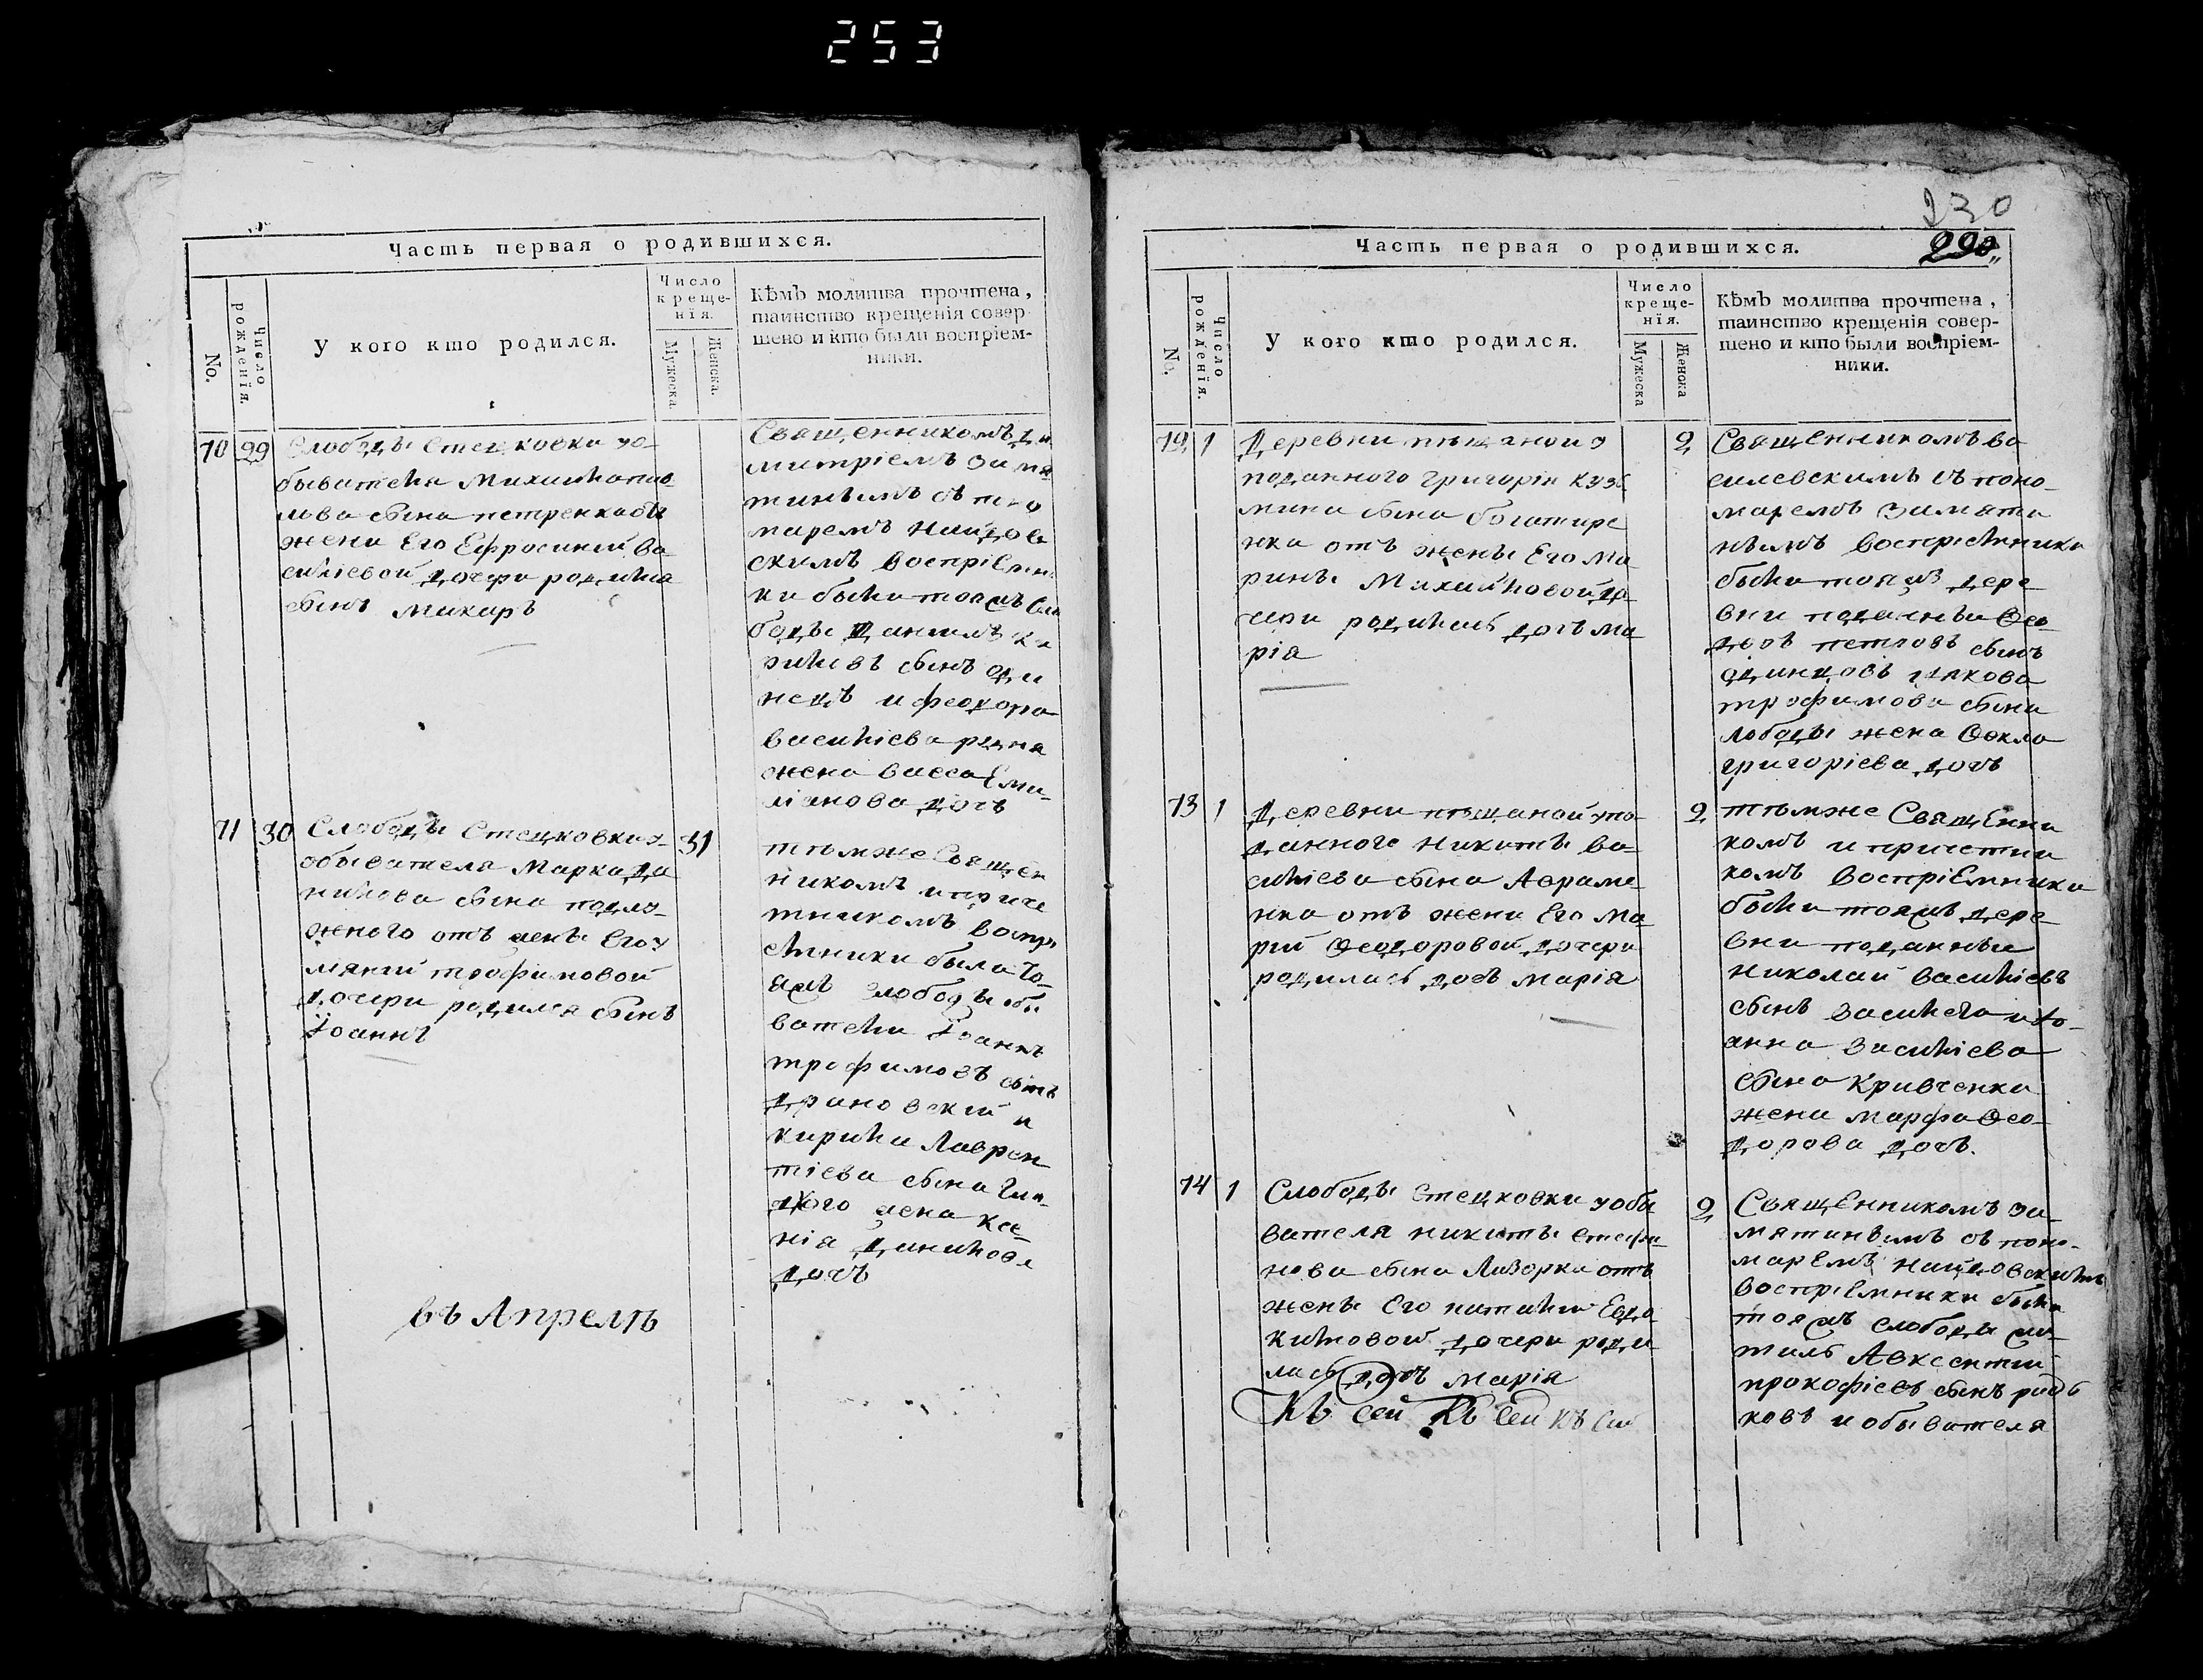 253
Часть первая о родившихся.
No.
Число рожденїя.
У кого кто родился.
Число
креще-
нїя.
Мужеска
Женска.
Кѣмъ молитва прочтена,
таинство крещенія совер-
шено и кто были воспріем-
ники.
70
29
Слободы Стецковки уо-
бывателя Михаила
сына петренка отъ
жены Его Ефросинии Ва
силіевой дочери родился
сынъ Макаръ
Священникомъ Ди
митріемъ Замя
тинымъ съ поно
маремъ Найдов
скимъ воспріемни
ки были тояжъ сло
боды Даніилъ Ки
риловъ сынъ оди
нецъ и феодора
василіева
жена васса Еми
ліанова дочь
71
30
Слободы Стецковки у-
обывателя Марка Да
нилова сына подлу-
жного отъ жены Его у
лянии трофимовой
дочери родился сынъ
Іоаннъ
31
тѣмже Священ
никомъ и приче
тникомъ воспрі
емники были то-
яжъ слободы обы
ватели Іоаннъ
трофимовъ сынъ
Драновский и
кирила Лаврен
тіева сына
жена Ксе-
нія Данилова
дочь
въ Апрелѣ
230
Часть первая о родившихся.
No.
Число рожденїя.
У кого кто родился.
Число
креще-
нїя.
Мужеска
Женска
Кѣмъ молитва прочтена,
таинство крещенія совер-
шено и кто были воспріем-
ники.
72
1
Деревни пѣщаной у
поданного григорія Кузь
мина сына богатире
нка отъ жены Его Ма
рины Михайловой до
чери родилась дочь ма
рія
2
Священникомъ ва
силевскимъ съ поно-
маремъ Замяти
нымъ воспріемники
были тояжъ дере
вни поданныи Ѳео
доръ петровъ сынъ
одинцовъ иякова
трофимова сына
лободы жена Ѳекла
григоріева дочь
73
1
Деревни пѣщаной упо-
данного никиты ва-
силіева сына Авраме-
нка отъ жены Его Ма
рии Ѳеодоровой дочери
родилась дочь марія
2
тѣмже Священни
комъ и причетни
комъ воспріемники
были тояжъ дере
вни поданныи
николай василіевъ
сынъ василега и Іо-
анна василіева
сына Кривченка
жена марфа Ѳео-
дорова дочь.
74
1
Слободы Стецковки уобы
вателя никиты стефа
нова сына Лазорка отъ
жены Его наталии Евдо
кимовой дочери роди
лась дочь марія
Къ сей Къ сей къ сей
2
Священникомъ За-
мятинымъ съ поно-
маремъ найдовскимъ
воспріемники были
тояжъ слободы жи-
тиль Авксентий
прокофіевъ сынъ
ковъ и обывателя